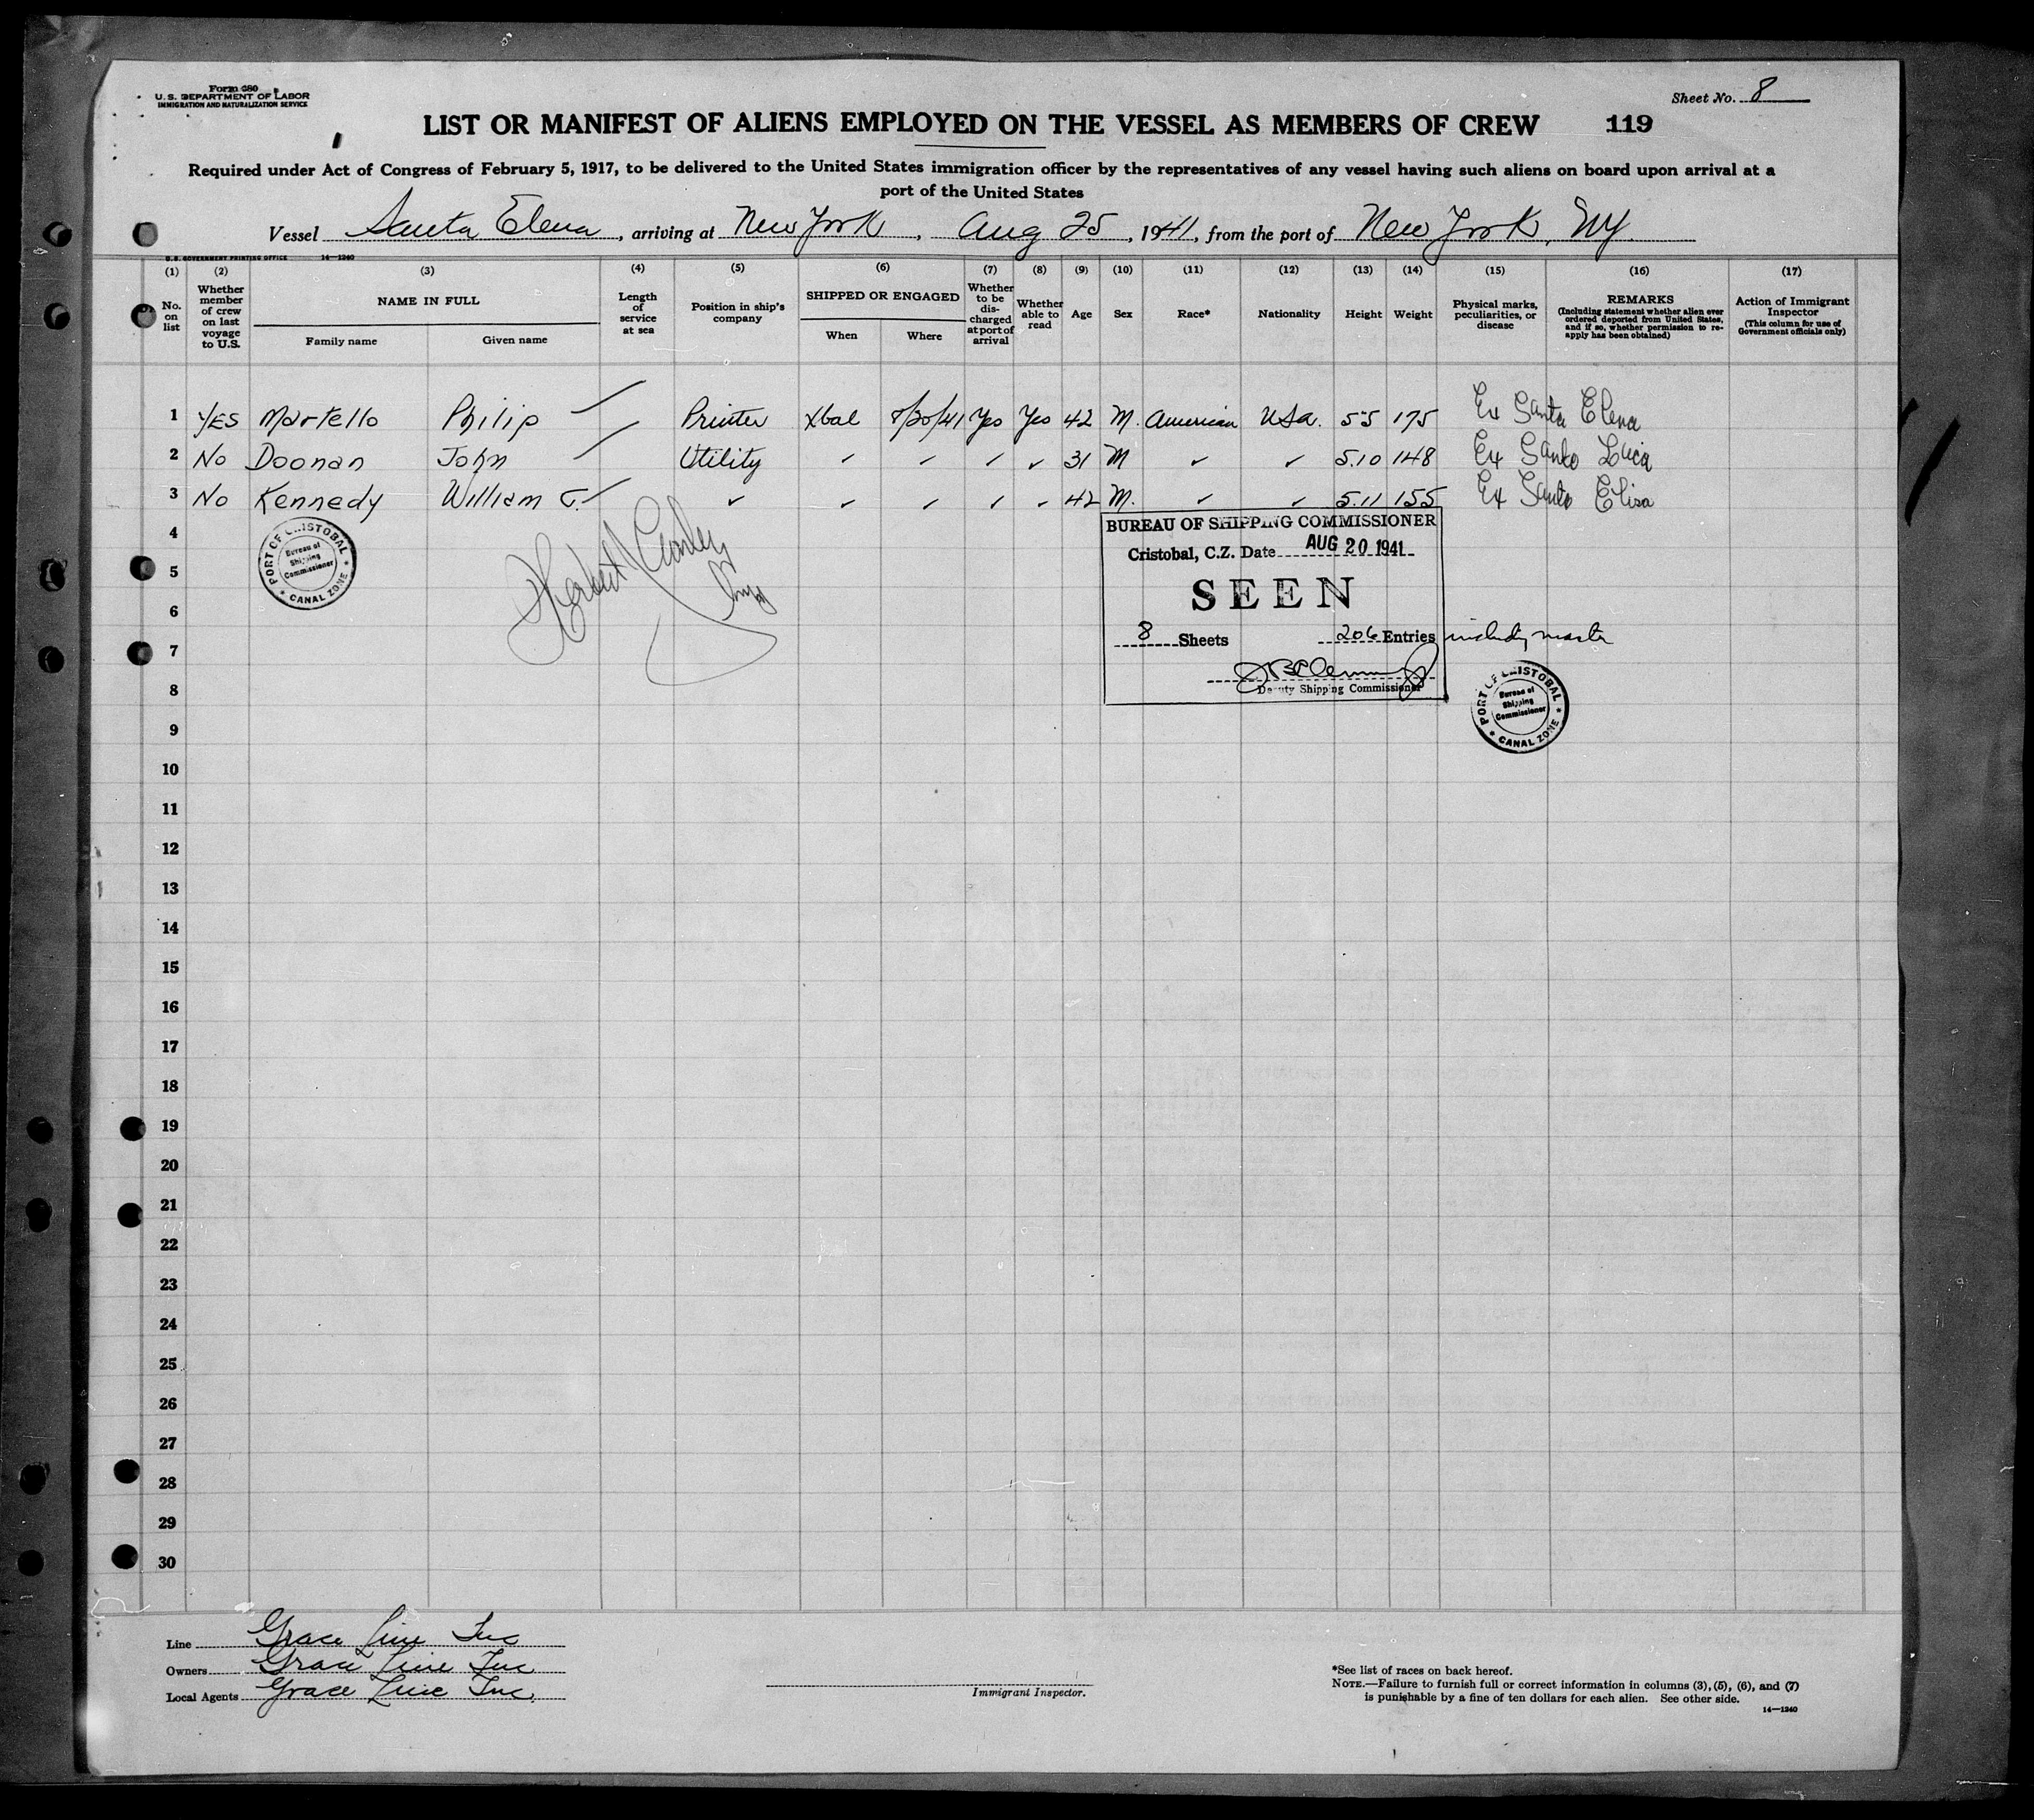 Form 680
U. S. DEPARTMENT OF LABOR
IMMIGRATION AND NATURALIZATION SERVICE
Sheet No. 8
LIST OR MANIFEST OF ALIENS EMPLOYED ON THE VESSEL AS MEMBERS OF CREW 119
Required under Act of Congress of February 5, 1917, to be delivered to the United States immigration officer by the representatives of any vessel having such aliens on board upon arrival at a
port of the United States
Vessel Santa Elena, arriving at New York, Aug 25, 1941, from the port of New York, NY.
U. S. GOVERNMENT PRINTING OFFICE 14—1240
(1) (2) (3) (4) (5) (6) (7) (8) (9) (10) (11) (12) (13) (14) (15) (16) (17)
No. on list
Whether member of crew on last voyage to U.S.
NAME IN FULL
Family name
Given name
Length of service at sea
Position in ship's company
SHIPPED OR ENGAGED
When
Where
Whether to be discharged at port of arrival
Whether able to read
Age
Sex
Race*
Nationality
Height
Weight
Physical marks, peculiarities, or disease
REMARKS
(Including statement whether alien ever ordered deported from United States, and if so, whether permission to reapply has been obtained)
Action of Immigrant Inspector
(This column for use of Government officials only)
1 YES Martello Philip Printer Xbal 8/20/41 Yes Yes 42 M. American USA. 5 5 175 Ex Santa Elena
2 No Doonan John Utility ✓ ✓ ✓ ✓ 31 M ✓ ✓ 5.10 148 Ex Santa Lucia
3 No Kennedy William T. ✓ ✓ ✓ ✓ ✓ 42 M. ✓ ✓ 5.11 155 Ex Santa Elisa
4
PORT OF CRISTOBAL
Bureau of
Shipping
Commissioner
CANAL ZONE
BUREAU OF SHIPPING COMMISSIONER
Cristobal, C.Z. Date AUG 20 1941
5
SEEN
6
8 Sheets 206 Entries including master
7
Deputy Shipping Commissioner
PORT OF CRISTOBAL
Bureau of
Shipping
Commissioner
CANAL ZONE
8
9
10
11
12
13
14
15
16
17
18
19
20
21
22
23
24
25
26
27
28
29
30
Line Grace Line Inc
Owners Grace Line Inc
Local Agents Grace Line Inc.
Immigrant Inspector.
*See list of races on back hereof.
NOTE.—Failure to furnish full or correct information in columns (3), (5), (6), and (7)
is punishable by a fine of ten dollars for each alien. See other side.
14—1240